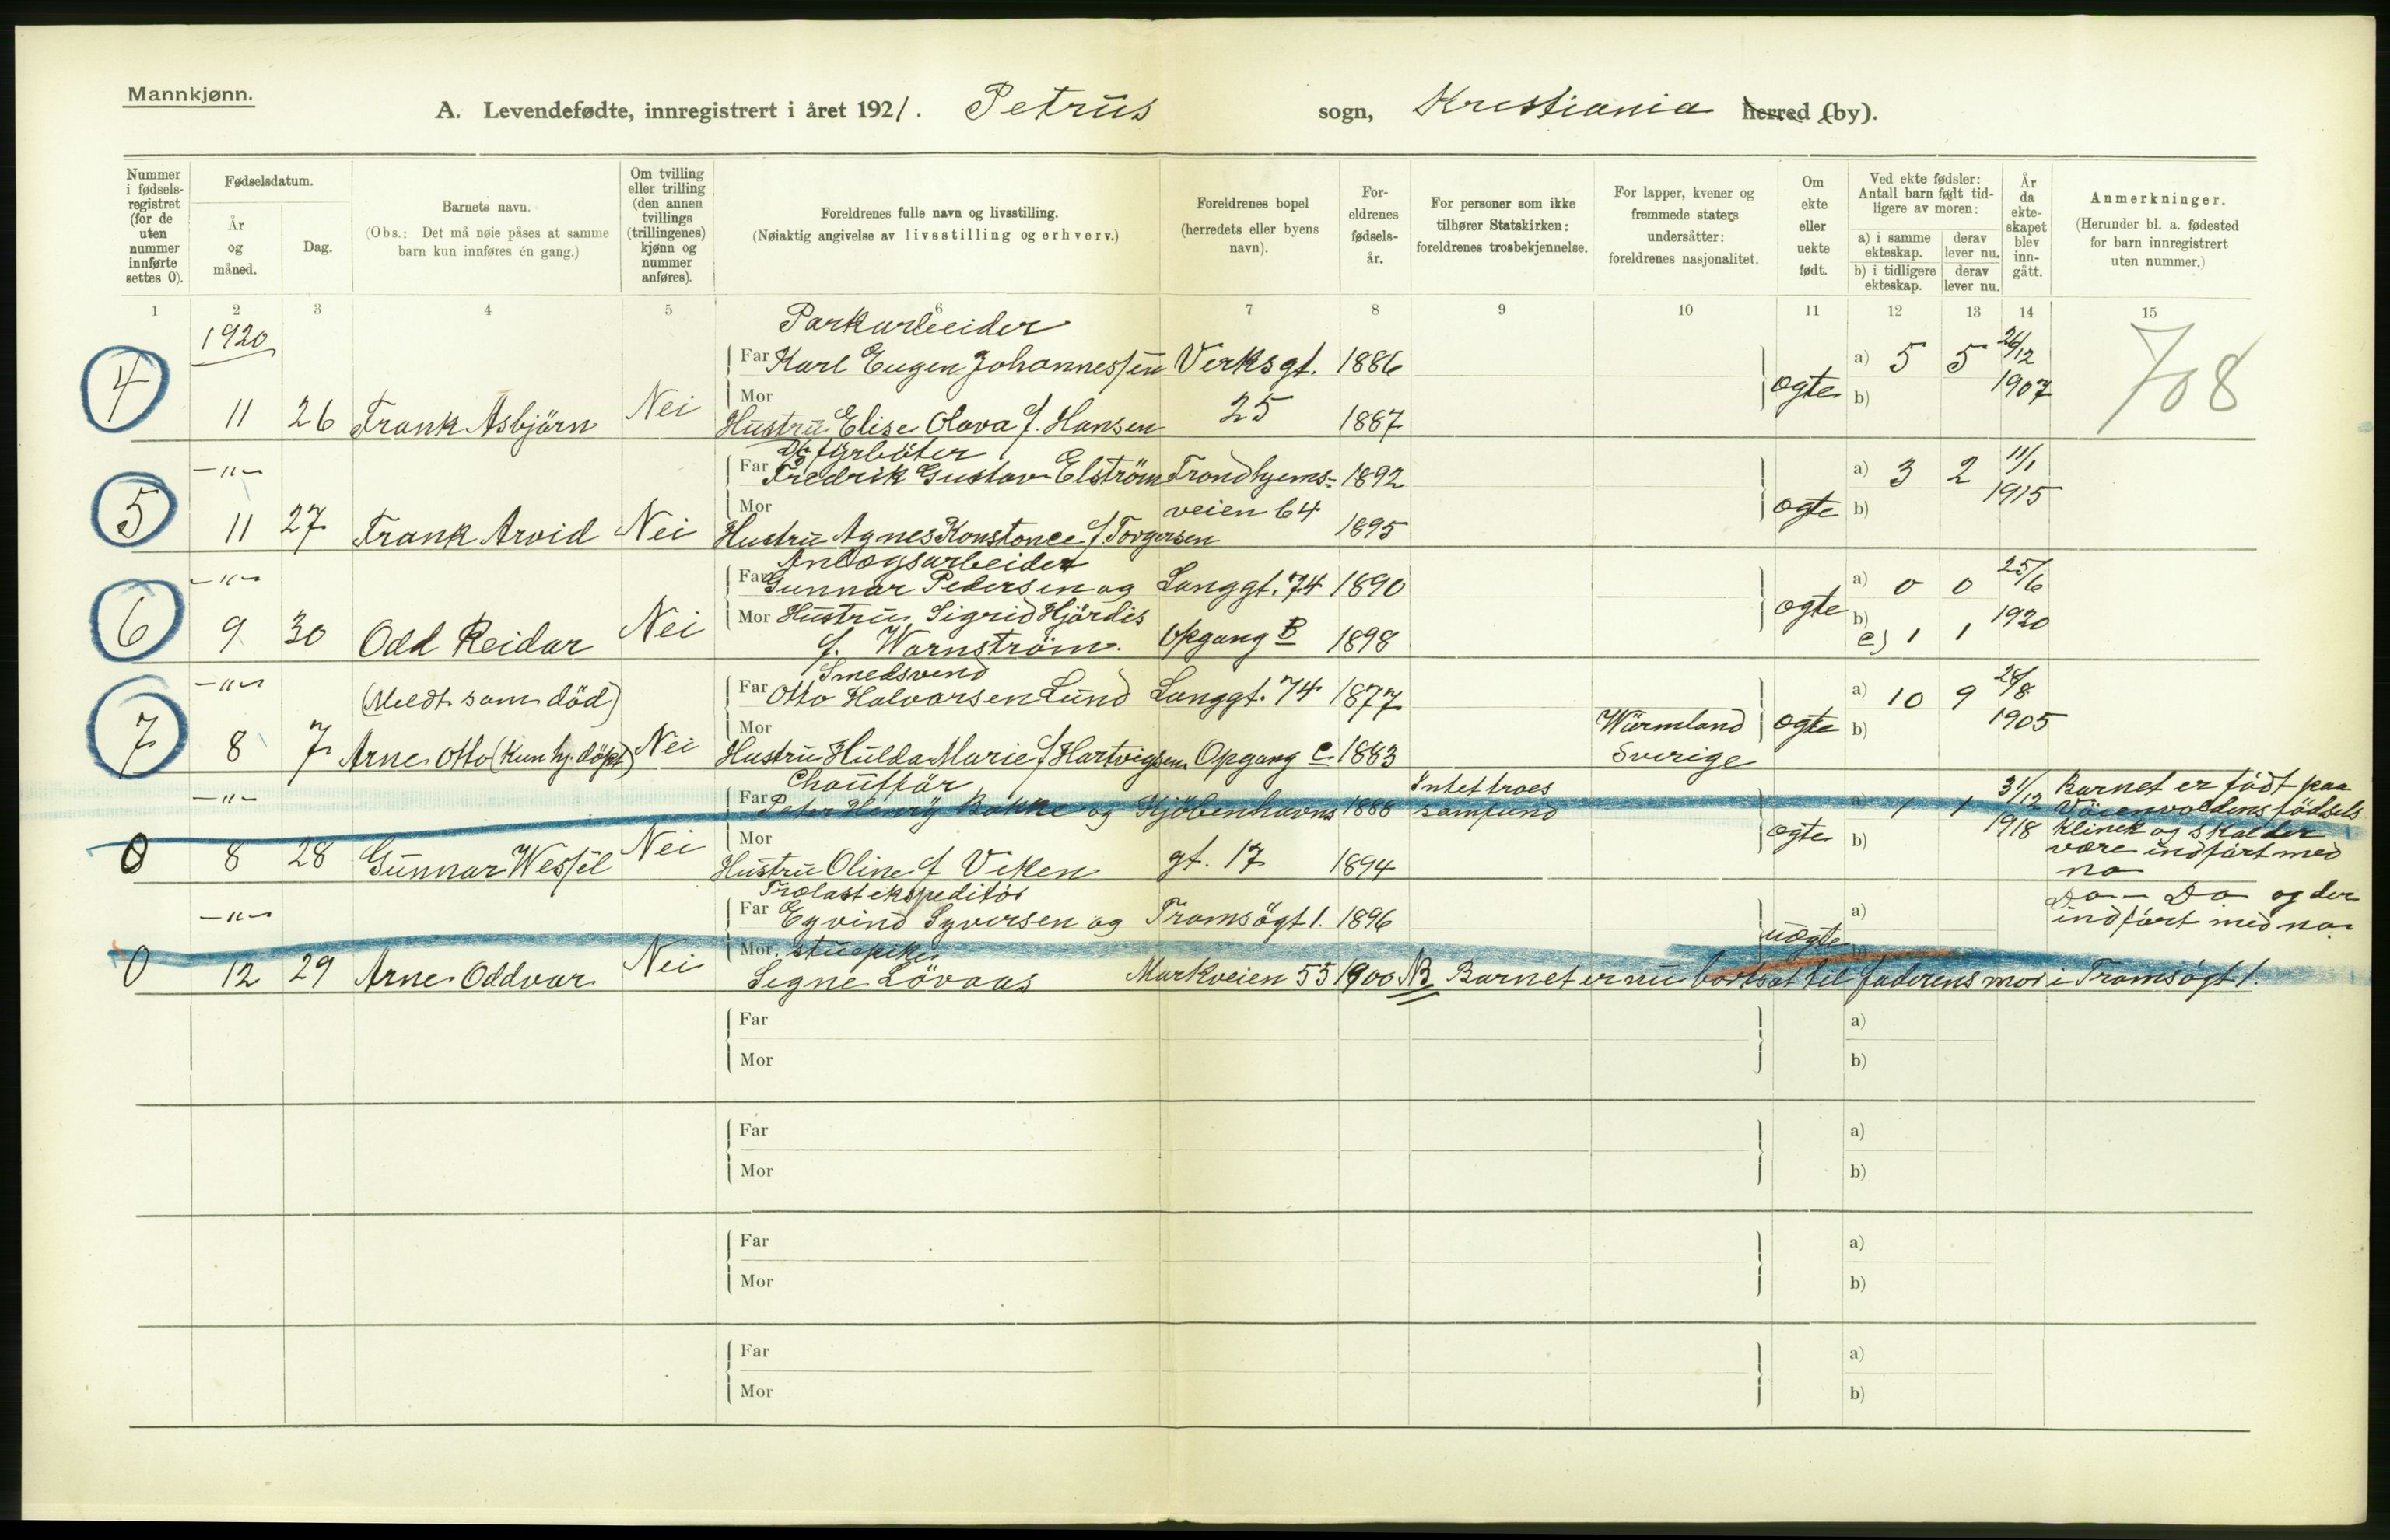 Mannkjønn.
A. Levendefødte, innregistrert i året 1921. Petrus sogn, Kristiania herred (by).
Nummer i fødselsregistret (for de uten nummer innførte settes 0).
Fødselsdatum.
År og måned.
Dag.
Barnets navn.
(Obs.: Det må nøie påses at samme barn kun innføres én gang.)
Om tvilling eller trilling (den annen tvillings (trillingenes) kjønn og nummer anføres).
Foreldrenes fulle navn og livsstilling.
(Nøiaktig angivelse av livsstilling og erhverv.)
Foreldrenes bopel (herredets eller byens navn).
Foreldrenes fødselsår.
For personer som ikke tilhører Statskirken: foreldrenes trosbekjennelse.
For lapper, kvener og fremmede staters undersåtter: foreldrenes nasjonalitet.
Om ekte eller uekte født.
Ved ekte fødsler: Antall barn født tidligere av moren:
a) i samme ekteskap. derav lever nu.
b) i tidligere ekteskap. derav lever nu.
År da ekteskapet blev inngått.
Anmerkninger.
(Herunder bl. a. fødested for barn innregistrert uten nummer.)
1 2 3 4 5 6 7 8 9 10 11 12 13 14 15
1920 Parkarbeider
Far Karl Eugen Johannessen Verksgt. 1886 a) 5 5 26/12
4 11 26 Frank Asbjörn Nei Mor Hustru Elise Olava f. Hansen 25 1887 ogte b) 1907 708
-"- Fyrböter
Far Fredrik Gustav Elström Trondhjems- 1892 a) 3 2 11/1
5 11 27 Frank Arvid Nei Mor Hustru Agnes Konstance f. Torgersen veien 64 1895 ogte b) 1915
-"- Anlægsarbeider
Far Gunnar Pedersen og Langgt. 74 1890 a) 0 0 25/6
6 9 30 Odd Reidar Nei Mor Hustru Sigrid Hjördis ogte b) 1920
f. Warnström. Opgang B 1898 c) 1 1
-"- (Meldt som död) Smedsvend
Far Otto Halvorsen Lund Langgt. 74 1877 a) 10 9 28/8
7 8 7 Arne Otto (Kun hj. döpt) Nei Mor Hustru Hulda Marie f Hartvigsen Opgang C 1883 Wärmland Sverige ogte b) 1905
-"- Chaufför Intet troes
Far Peter Henry Bakke og Kjöbenhavns 1888 samfund a) 1 1 31/12 Barnet er födt paa
0 8 28 Gunnar Wessel Nei Mor Hustru Oline f Viken gt. 17 1894 ogte b) 1918 Vöienvoldens födsels
klinik og skal der
være indfört med
no
-"- Trælastekspeditör
Far Eyvind Syversen og Tromsögt 1. 1896 a) Do - Do og der
indfört med no.
0 12 29 Arne Oddvar Nei Mor, stuepike uægte b)
Signe Lövaas Markveien 55 1900 NB Barnet er nu bortsat til faderens mor i Tromsögt 1.
Far a)
Mor b)
Far a)
Mor b)
Far a)
Mor b)
Far a)
Mor b)